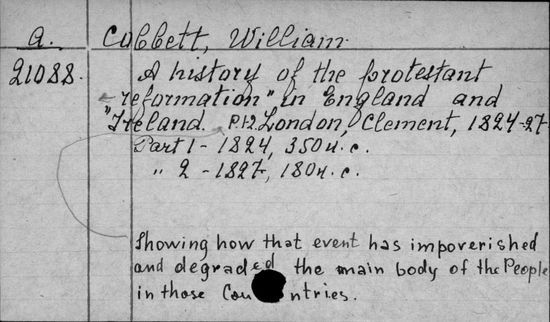 a. Cobbett, William.
21088. A history of the protestant
reformation" in England and
"Ireland. P.1-2. London, Clement, 1824-27.
Part 1 - 1824, 350 н. с.
" 2 - 1827, 180 н. с.
Showing how that event has impoverished
and degraded the main body of the People
in those Countries.